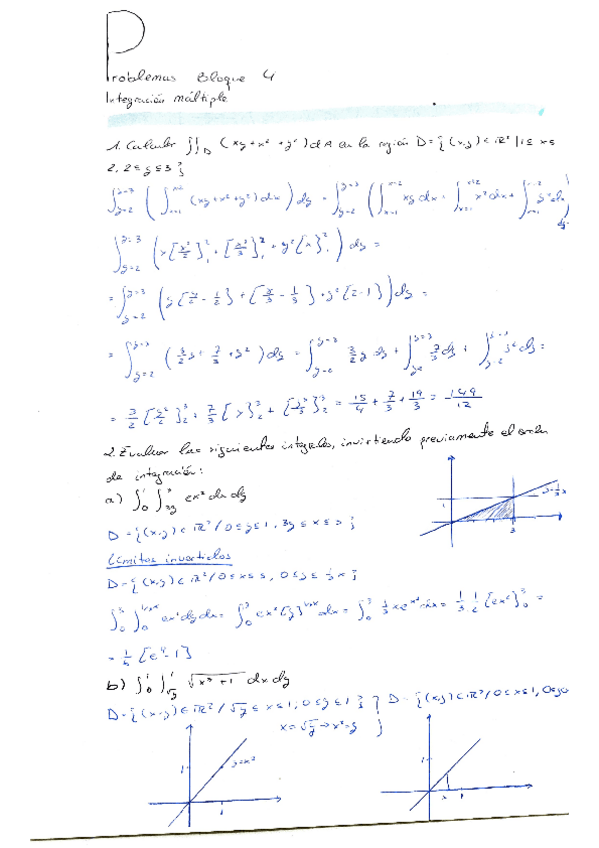 Problemas Bloque 4
Integración múltiple
1. Calcular ∬_D (xy+x²+y²) dA en la región D={(x,y)∈ℝ² | 1≤x≤
2, 2≤y≤3}
∫_{y=2}^{y=3} ( ∫_{x=1}^{x=2} (xy+x²+y²) dx ) dy = ∫_{y=2}^{y=3} ( ∫_{x=1}^{x=2} xy dx + ∫_{x=1}^{x=2} x² dx + ∫_{x=1}^{x=2} y² dx ) dy =
∫_{y=2}^{y=3} ( y[x²/2]₁² + [x³/3]₁² + y²[x]₁² ) dy =
= ∫_{y=2}^{y=3} ( y[4/2 - 1/2] + [8/3 - 1/3] + y²[2-1] ) dy =
= ∫_{y=2}^{y=3} ( 3/2 y + 7/3 + y² ) dy = ∫_{y=2}^{y=3} 3/2 y dy + ∫_{y=2}^{y=3} 7/3 dy + ∫_{y=2}^{y=3} y² dy =
= 3/2 [y²/2]₂³ + 7/3 [y]₂³ + [y³/3]₂³ = 15/4 + 7/3 + 19/3 = 149/12
2. Evaluar las siguientes integrales, invirtiendo previamente el orden
de integración:
a) ∫₀¹ ∫_{3y}^{3} ex² dx dy
y=1/3 x
1
3
D={(x,y)∈ℝ² / 0≤y≤1, 3y≤x≤3}
Límites invertidos
D={(x,y)∈ℝ² / 0≤x≤3, 0≤y≤1/3 x}
∫₀³ ∫₀^{1/3x} ex² dy dx = ∫₀³ ex² [y]₀^{1/3x} dx = ∫₀³ 1/3 x e^{x²} dx = 1/3 · 1/2 [ex²]₀³ =
= 1/6 [e⁹-1]
b) ∫₀¹ ∫_{√y}^{1} √(x³+1) dx dy
D={(x,y)∈ℝ² / √y≤x≤1, 0≤y≤1} D={(x,y)∈ℝ² / 0≤x≤1, 0≤y≤
x=√y → x²=y }
1
y=x²
1
1
x
1